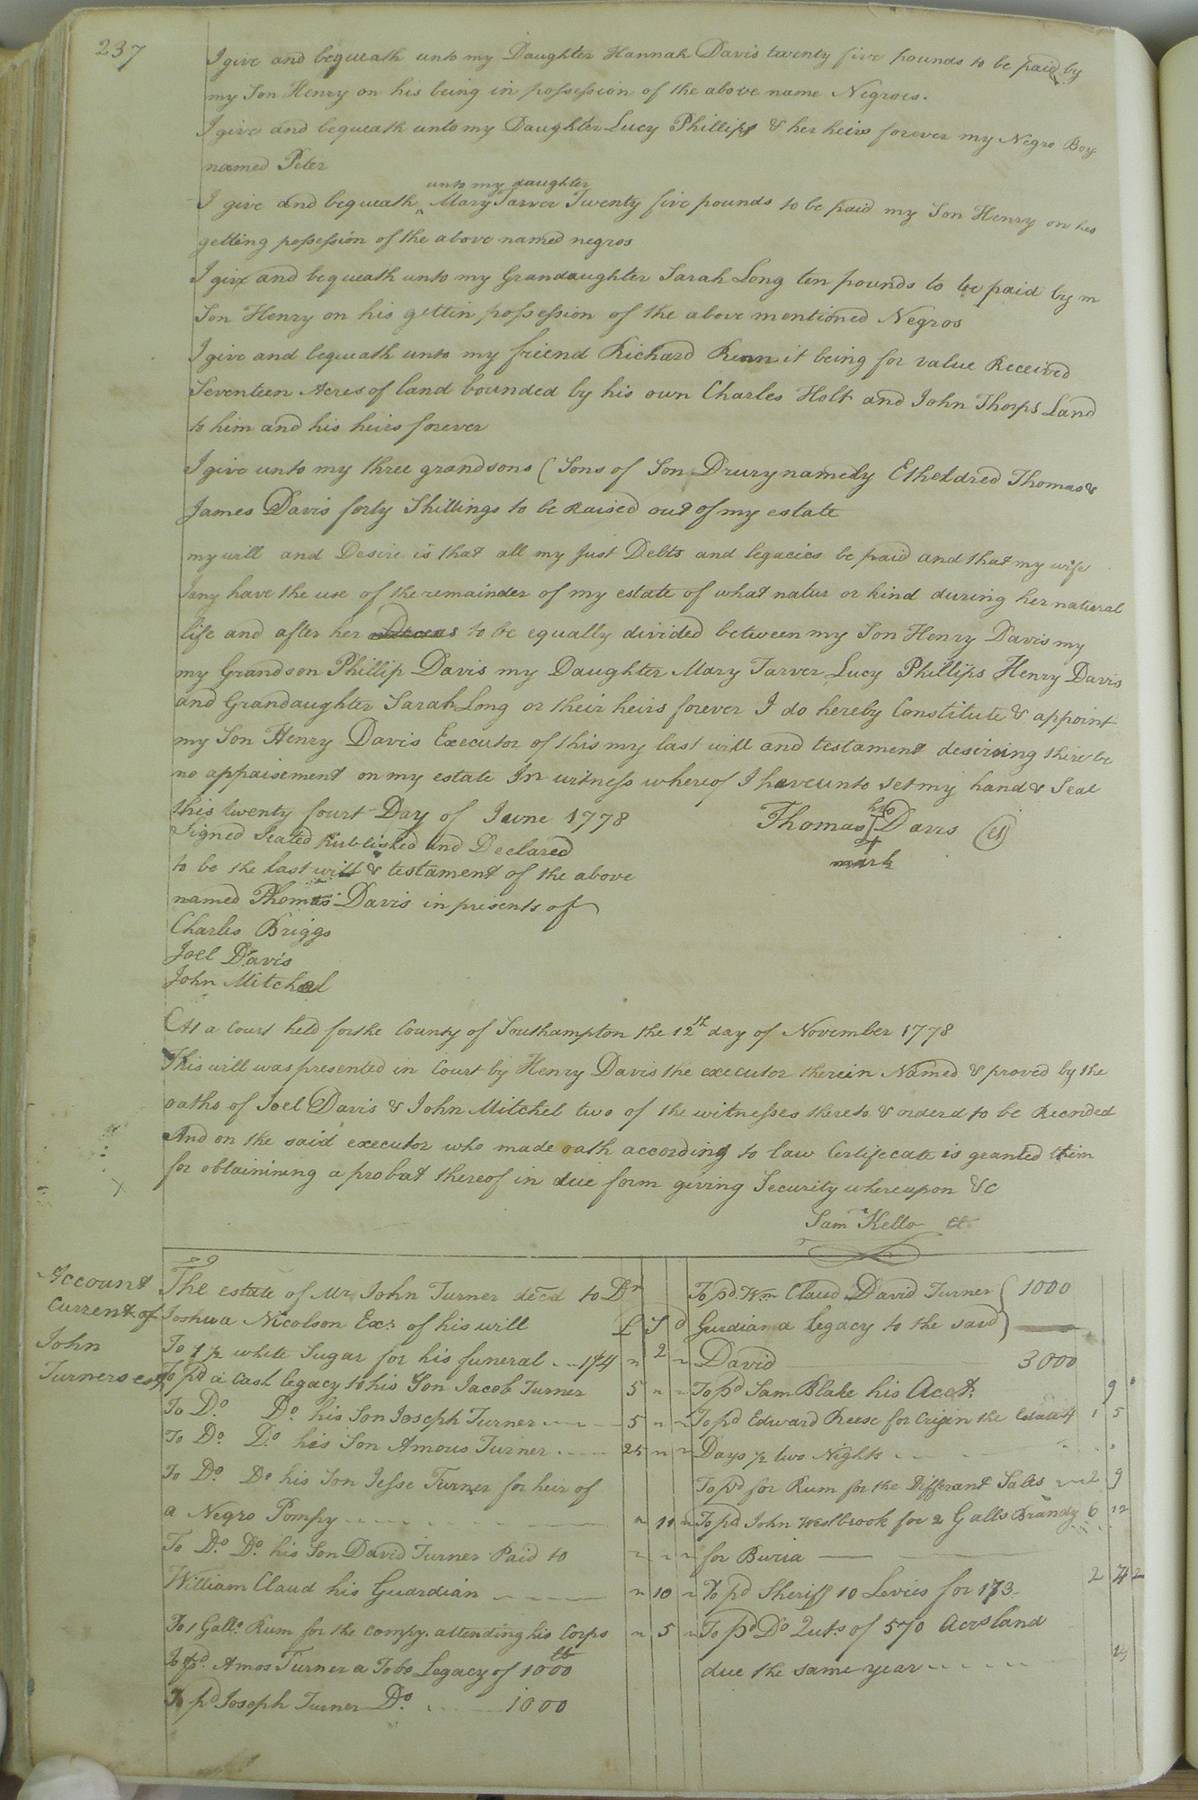 237
I give and bequeath unto my Daughter Hannah Davis twenty five pounds to be paid by
my Son Henry on his being in possession of the above name Negroes.
I give and bequeath unto my Daughter Lucy Phillips & her heirs forever my Negro Boy
named Peter
unto my daughter
I give and bequeath ^ Mary Tarver Twenty five pounds to be paid my Son Henry on his
getting possession of the above named negros
I give and bequeath unto my Grandaughter Sarah Long ten pounds to be paid by m
Son Henry on his gettin possession of the above mentioned Negros
I give and bequeath unto my friend Richard it being for value Received
Seventeen Acres of land bounded by his own Charles Holt and John Thorps Land
to him and his heirs forever
I give unto my three grandsons ( Sons of Son Drury namely Etheldred Thomas &
James Davis forty Shillings to be Raised out of my estate
my will and Desire is that all my Just Debts and legacies be paid and that my wife
Jany have the use of the remainder of my estate of what natur or kind during her natural
life and after her Deceas to be equally divided between my Son Henry Davis my
my Grandson Phillip Davis my Daughter Mary Tarver Lucy Phillips Henry Davis
and Grandaughter Sarah Long or their heirs forever I do hereby Constitute & appoint
my Son Henry Davis Executor of this my last will and testament desiring there be
no appaisement on my estate In witness whereof I haveunto Set my hand & Seal
this twenty fourt Day of June 1778
Thomas his Davis (LS)
mark
Signed Sealed Published and Declared
to be the last will & testament of the above
named Thomas Davis in presents of
Charles Briggs
Joel Davis
John Mitchel
At a Court held for the County of Southampton the 12th day of November 1778
This will was presented in Court by Henry Davis the executor therein Named & proved by the
oaths of Joel Davis & John Mitchel two of the witnesses thereto & orderd to be Recorded
And on the said executor who made oath according to law Certifecate is granted him
for obtainining a probat thereof in due form giving Security whereupon &c
Sam Kello
Account
Current of
John
Turners est
The estate of Mr John Turner decd to Dr
Joshua Nicolson Exr of his will £ S d
To white Sugar for his funeral 2
To pd a Cash legacy to his Son Jacob Turner 5
To Do Do his Son Joseph Turner 5
To Do Do his Son Amous Turner 25
To Do Do his Son Jesse Turner for heir of
a Negro Pompy
To Do Do his Son David Turner Paid to
William Claud his Guardian 10
To 1 Gall. Rum for the compy. attending his Corps 5
To pd Amos Turner a Tobo Legacy of 1000
To pd Joseph Turner Do 1000
To pd Wm Claud David Turner 1000
Gurdian a legacy to the said
David 3000
To pd Sam Blake his Acct. 9
To pd Edward Reese for Criin the Estate 4 1 5
Days & two Nights
To pd for Rum for the Differant Sales 2 9
To pd John Westbrook for 2 Galls Brandy 6 12
for Buria
To pd Sheriff 10 Levies for 173
To pd Do Quts of 570 Acrs land
due the same year